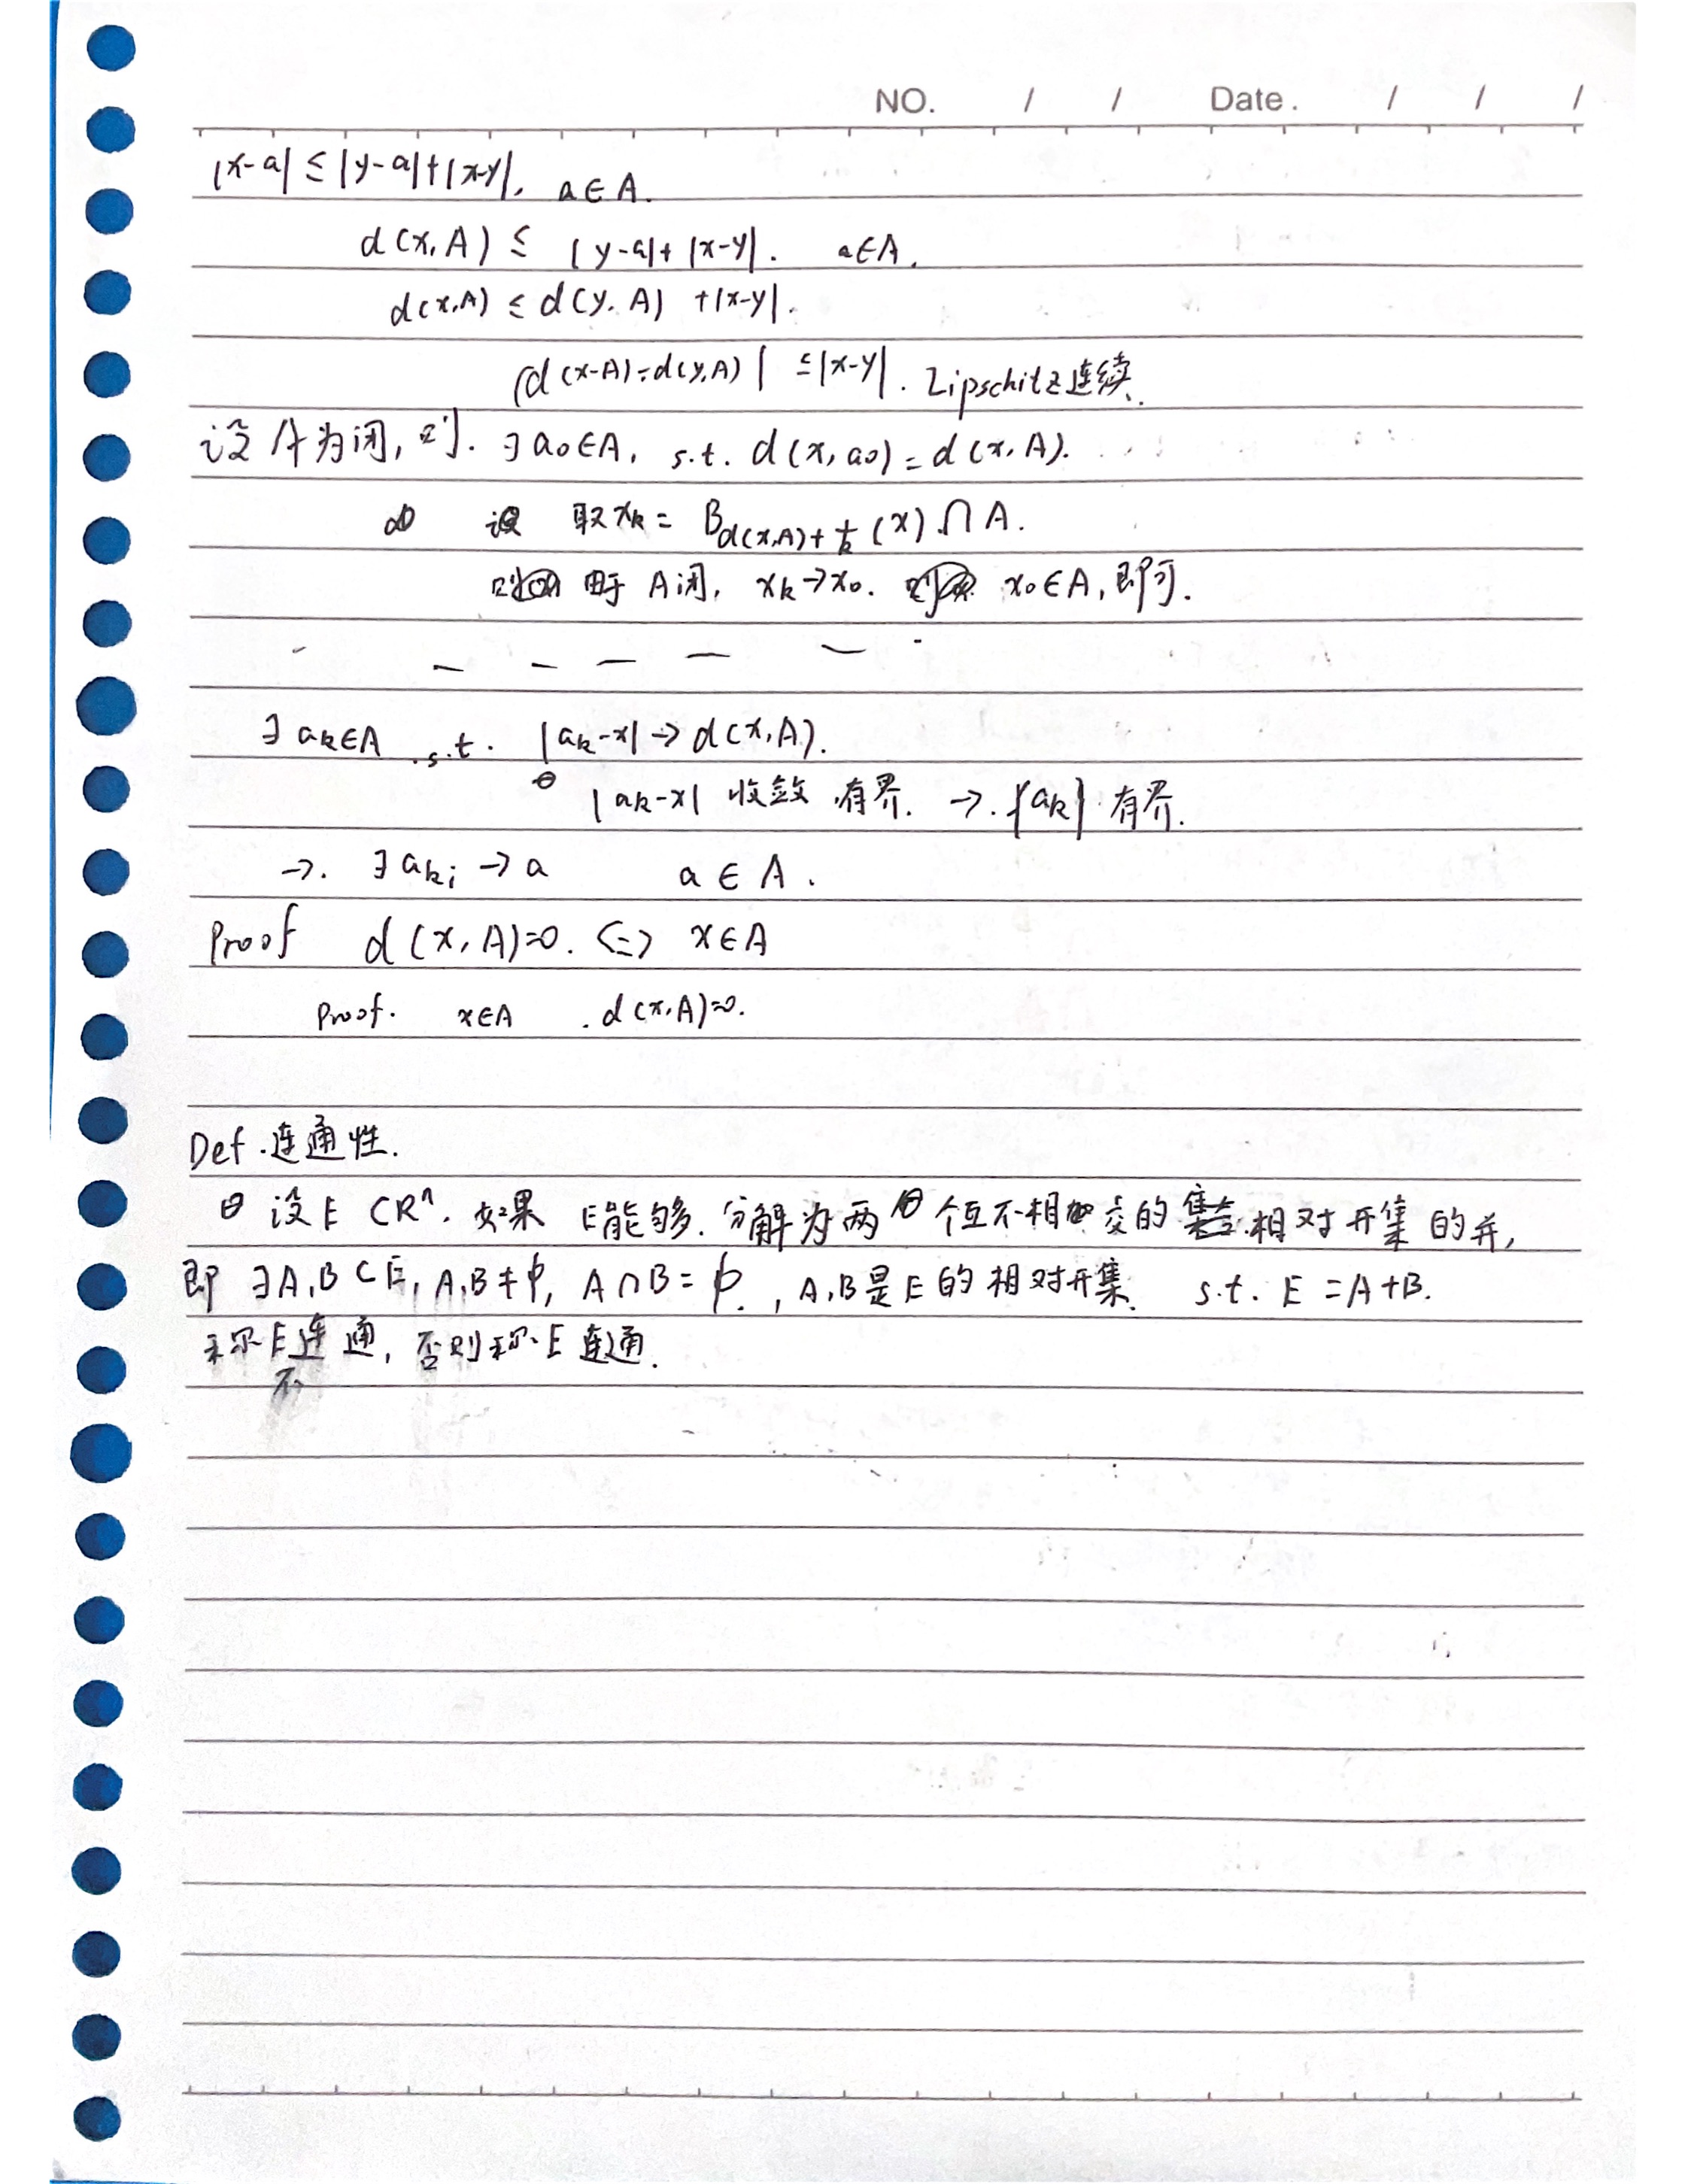 NO. / / Date. / / /
|x-a| ≤ |y-a|+|x-y|, a∈A.
d(x,A) ≤ |y-a|+|x-y|. a∈A.
d(x,A) ≤ d(y,A) +|x-y|.
|d(x-A)-d(y,A)| ≤|x-y|. Lipschitz连续.
设A为闭,则. ∃a₀∈A, s.t. d(x,a₀)=d(x,A).
取xₖ= B_{d(x,A)+1/k}(x)∩A.
由于 A闭, xₖ→x₀. x₀∈A,即可.
∃aₖ∈A s.t. |aₖ-x|→d(x,A).
|aₖ-x| 收敛,有界. →. {aₖ} 有界.
→. ∃aₖᵢ→a a∈A.
Proof d(x,A)=0. <=> x∈A
Proof. x∈A . d(x,A)=0.
Def.连通性.
设E⊂Rⁿ.如果 E能够.分解为两个互不相交的相对开集的并,
即∃A,B⊂E, A,B≠φ, A∩B=φ., A,B是E的相对开集. s.t. E=A+B.
称E不连通,否则称E连通.